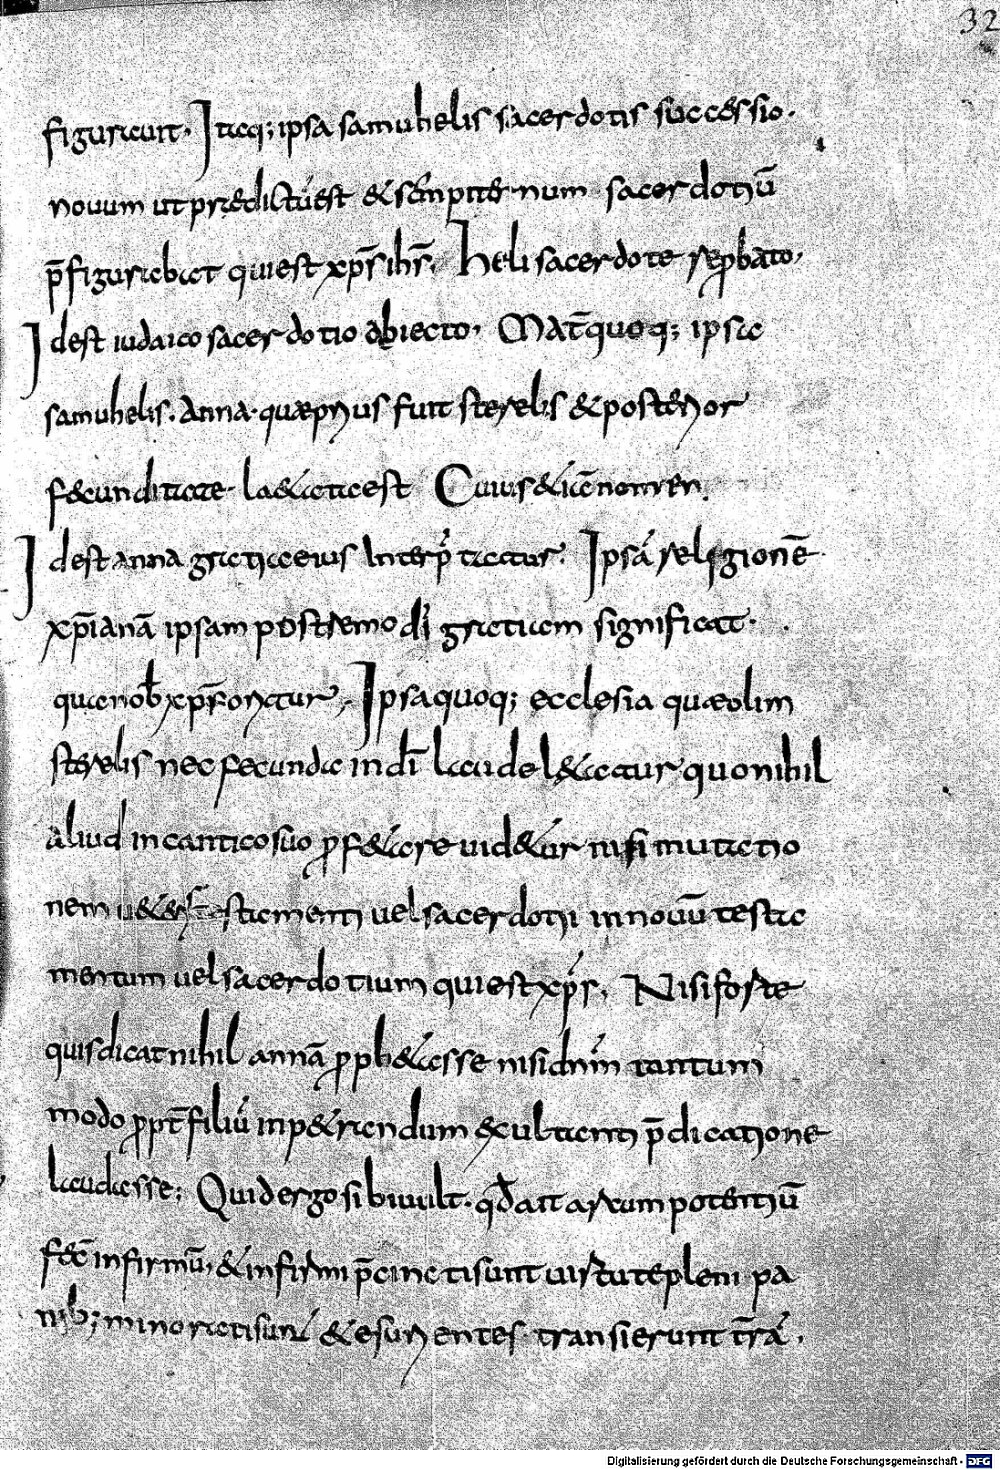 32
figurauit. Itaq; ipsa samuhelis sacerdotis successio.
nouum ut predictū est & sēmpiternum sacerdotiū
p̄figurabat qui est xp̄s ih̄s. Heli sacerdote reprobato,
Idest iudaico sacerdotio abiecto. Mat̄ quoq; ipsa
samuhelis. anna. quæ prius fuit sterelis & posterior
fecunditate. l&ata est Cuius &iā nomen.
Idest anna gratia eius interp̄tatur. Ipsā religionē
xp̄ianā ipsam postremo dī gratiam significat.
quoq; ecclesia quæ olim
sterelis nec fecunda in dī laude l&atur quo nihil
aliud in cantico suo prof&are uid&ur nisi mutatio
nem testamenti uel sacerdotii in nouū testa
mentum uel sacerdotium qui est xp̄s, Nisi forte
quis dicat nihil annā proph&asse nisi dn̄m tantum
modo propt̄ filiū inp&randum exultanti p̄dicatione
laudasse; Quid ergo sibi uult. qđ ait arcum potentiū
fec̄ infirmū, & infirmi p̄cincti sunt uirtute pleni pa
nib; minorati sunt & esurientes transierunt t̄rā.
Digitalisierung gefördert durch die Deutsche Forschungsgemeinschaft - DFG